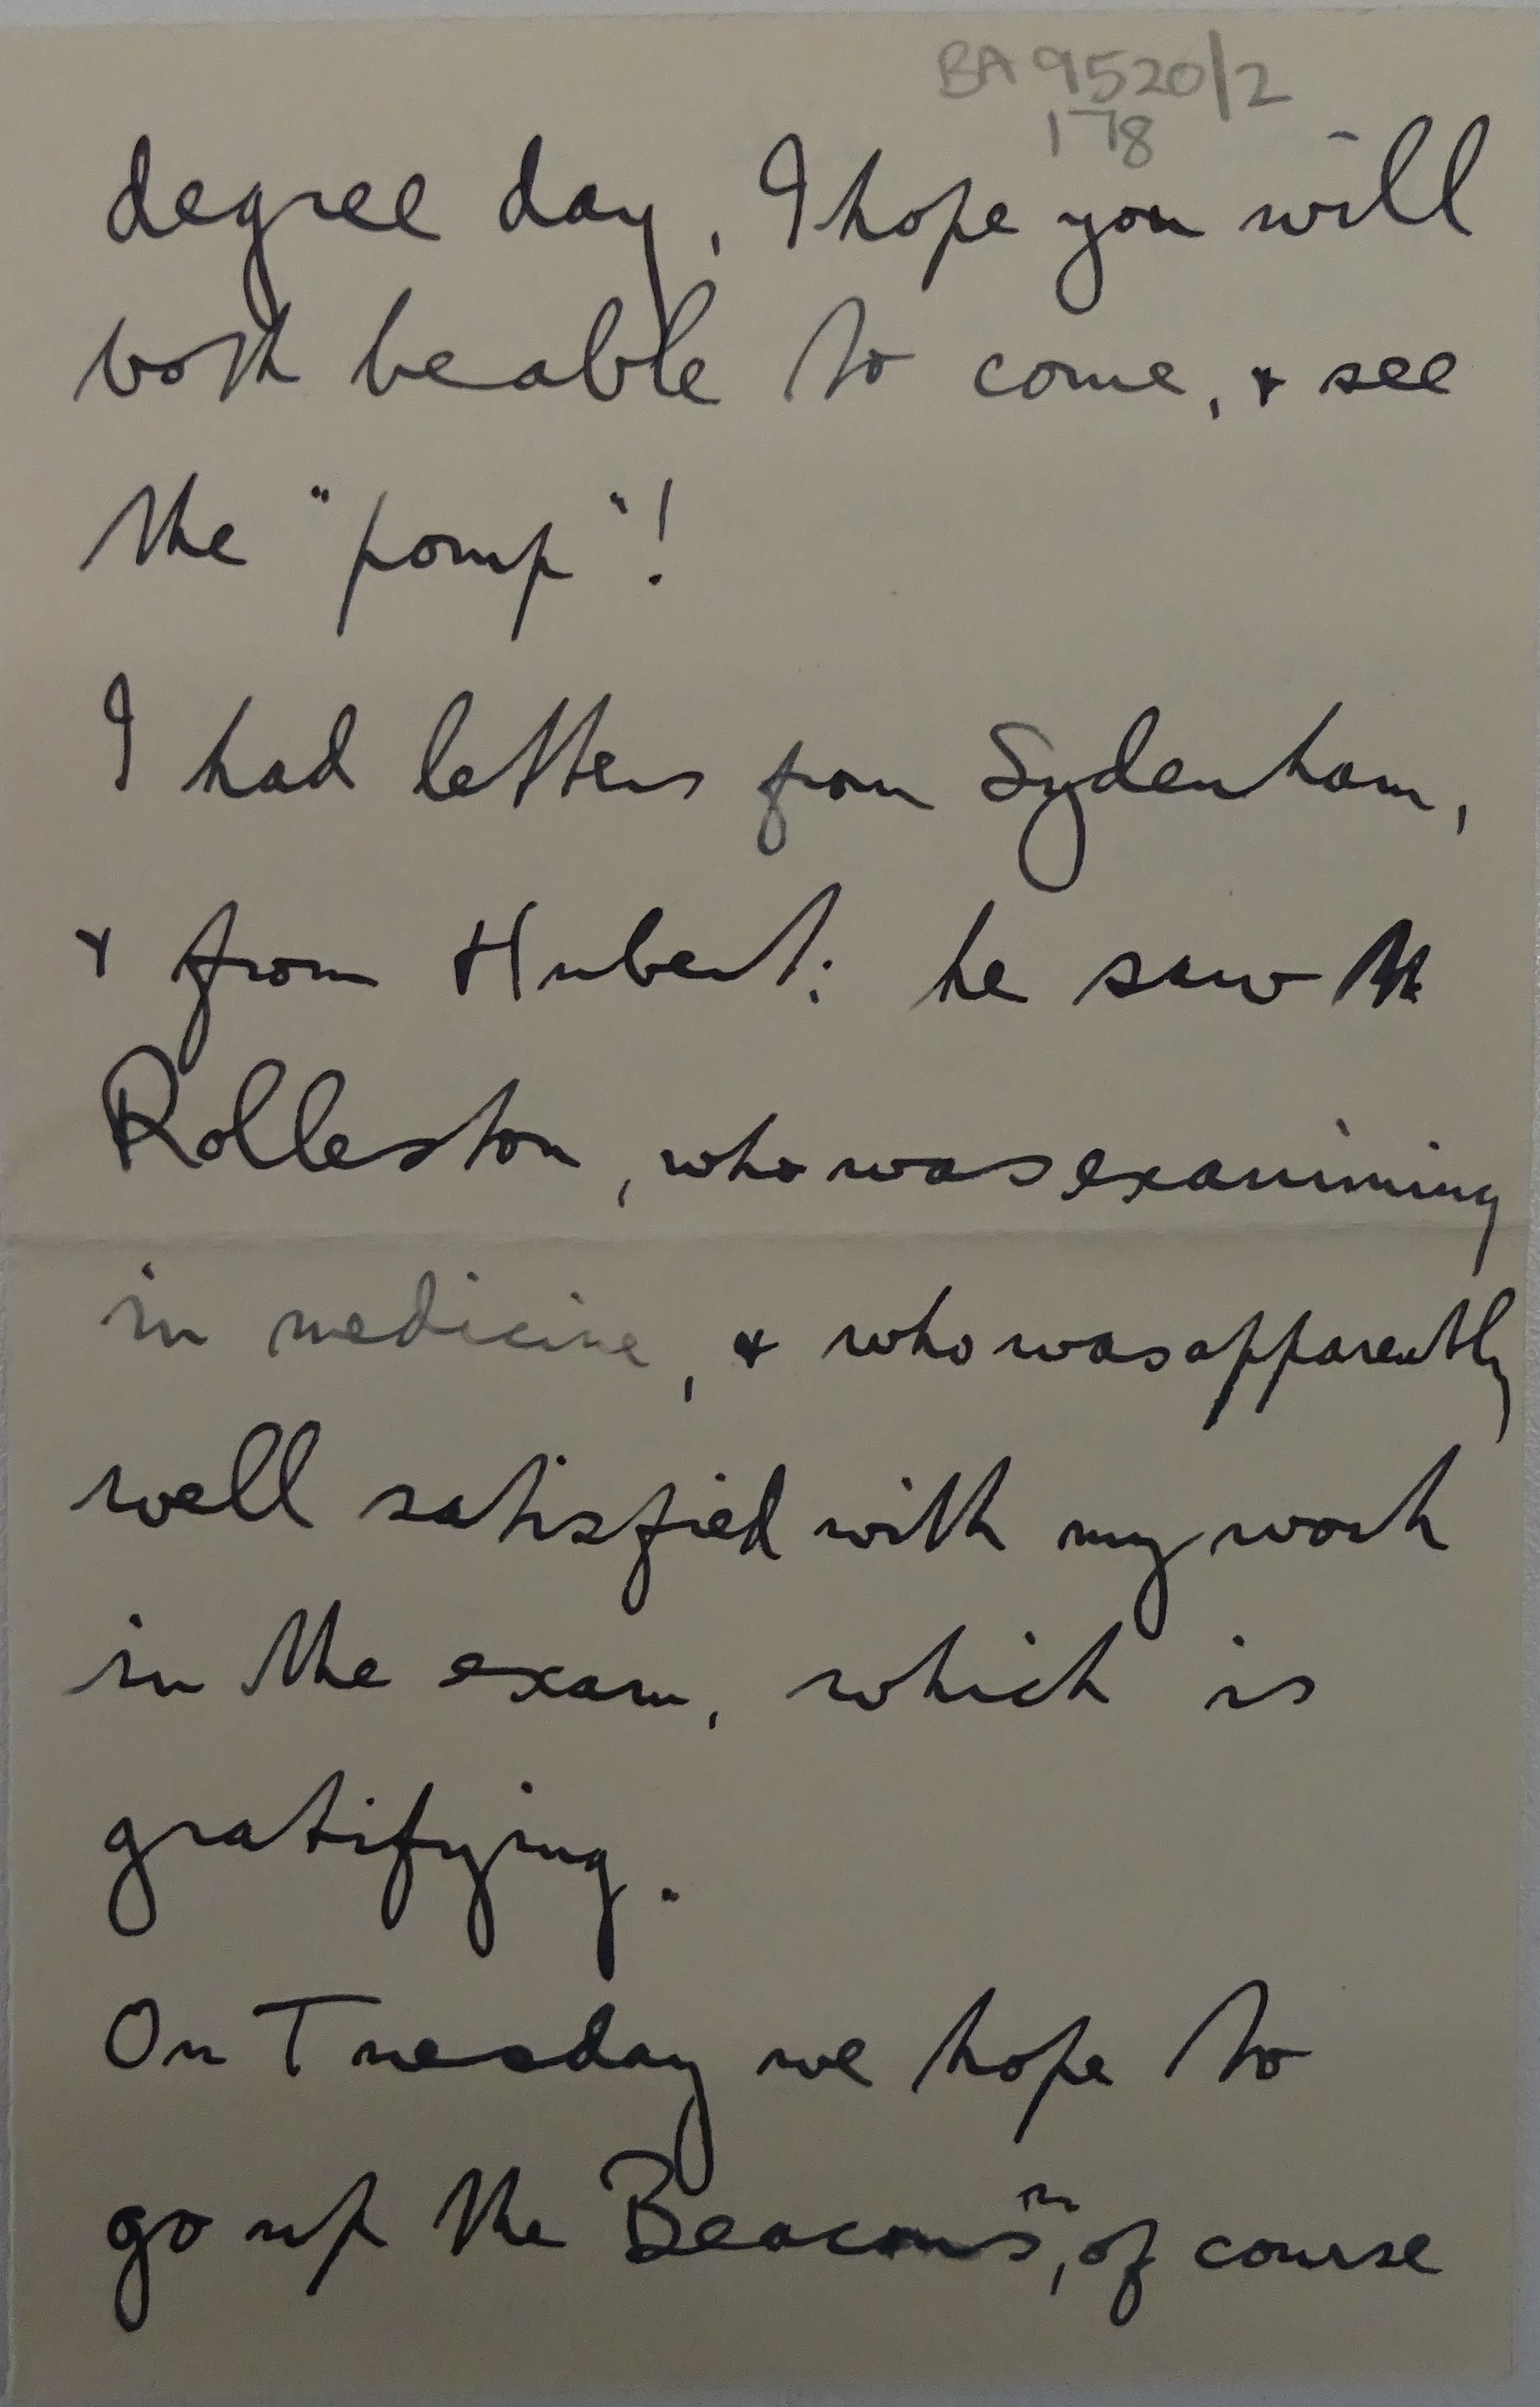 BA 9520/2
178
degree day, I hope you will
both be able to come, & see
the "pomp"!
I had letters from Sydenham,
& from Hubert: he saw
Rolleston, who was examining
in medicine, & who was apparently
well satisfied with my work
in the exam, which is
gratifying.
On Tuesday we hope to
go up the Beacons, of course